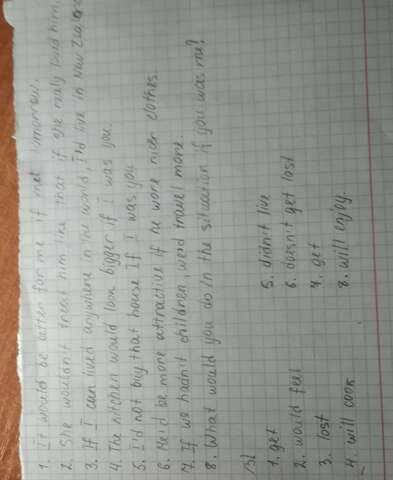 1. It would be better for me if met tomorrow.
2. She wouldn't treat him like that if she really loved him.
3. If I can lived anywhere in the world, I'd live in New Zealand
4. The kitchen would look bigger if I was you.
5. I'd not buy that house If I was you
6. He'd be more attractive if he wore nicer clothes.
7. If we hadn't children, we'd travel more.
8. What would you do in the situation if you was me?
B)
1. get
2. would feel
3. lost
4. will cook
5. didn't live
6. doesn't get lost
7. get
8. will enjoy.